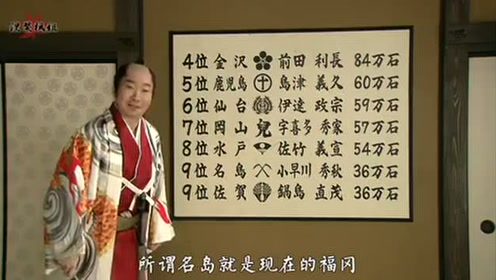 4位 金沢 前田 利長 84万石
5位 鹿児島 島津 義久 60万石
6位 仙台 伊達 政宗 59万石
7位 岡山 兒 宇喜多 秀家 57万石
8位 水戸 佐竹 義宣 54万石
9位 名島 小早川 秀秋 36万石
9位 佐賀 鍋島 直茂 36万石
所谓名岛就是现在的福冈